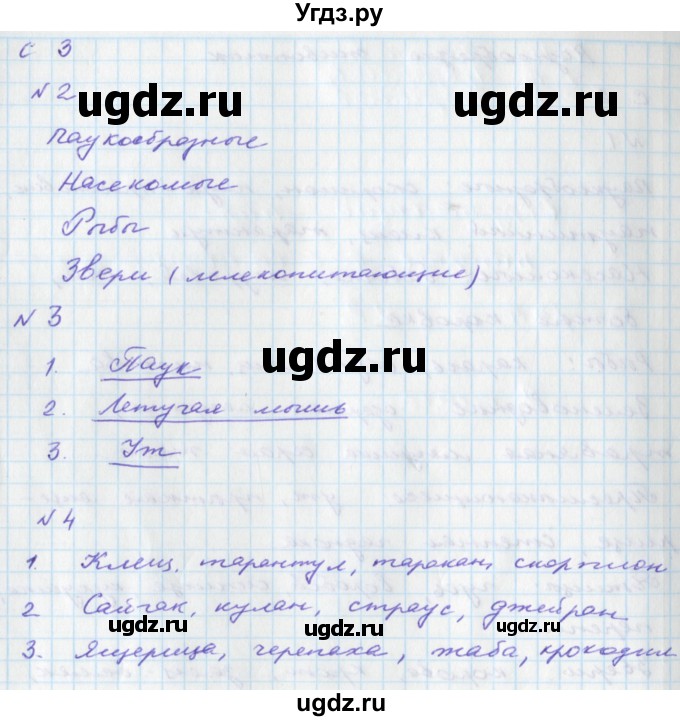 Угдз.ру
с 3
№2
ugdz.ru
ugdz.ru
Паукообразные
Насекомые
Рыбы
Звери (млекопитающие)
№ 3
ugdz.ru
1. Паук
2. Летучая мышь
3. Уж
ugdz.ru
№ 4
1. Клещ, тарантул, таракан, скорпион
2 Сайгак, кулан, страус, джейран
ugdz.ru
ugdz.ru
3. Ящерица, черепаха, жаба, крокодил
ugdz.ru